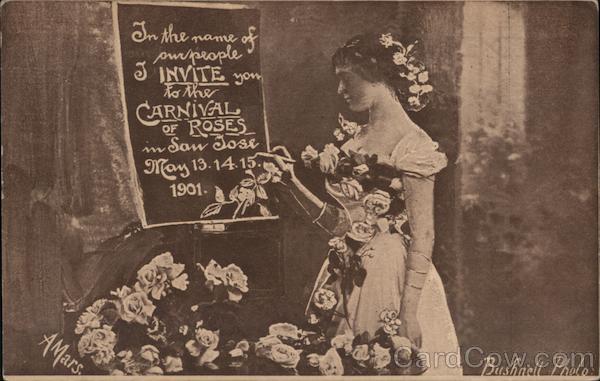 In the name of
our people
I INVITE you
to the
CARNIVAL
OF ROSES
in San Jose
May 13.14.15.
1901.
A Mars.
Bushnell Photo:
CardCow.com